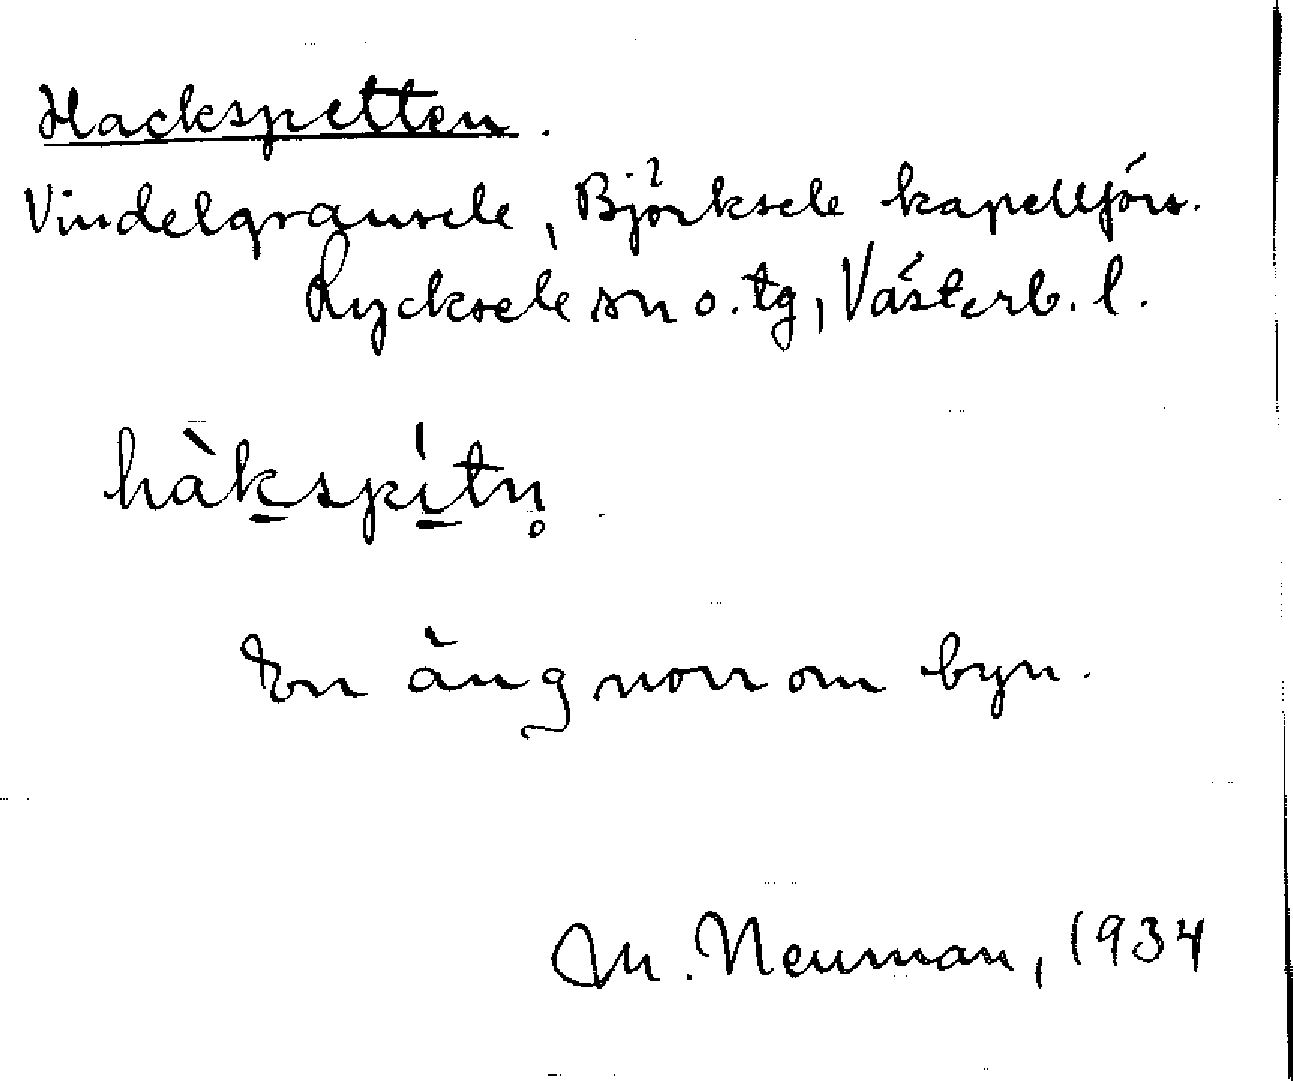 Hackspetten.
Vindelgransele, Björksele kapellförs.
Lycksele sn o. tg, Västerb. l.
hàk̠spí̠tn̥
En äng norr om byn.
M. Neuman, 1934